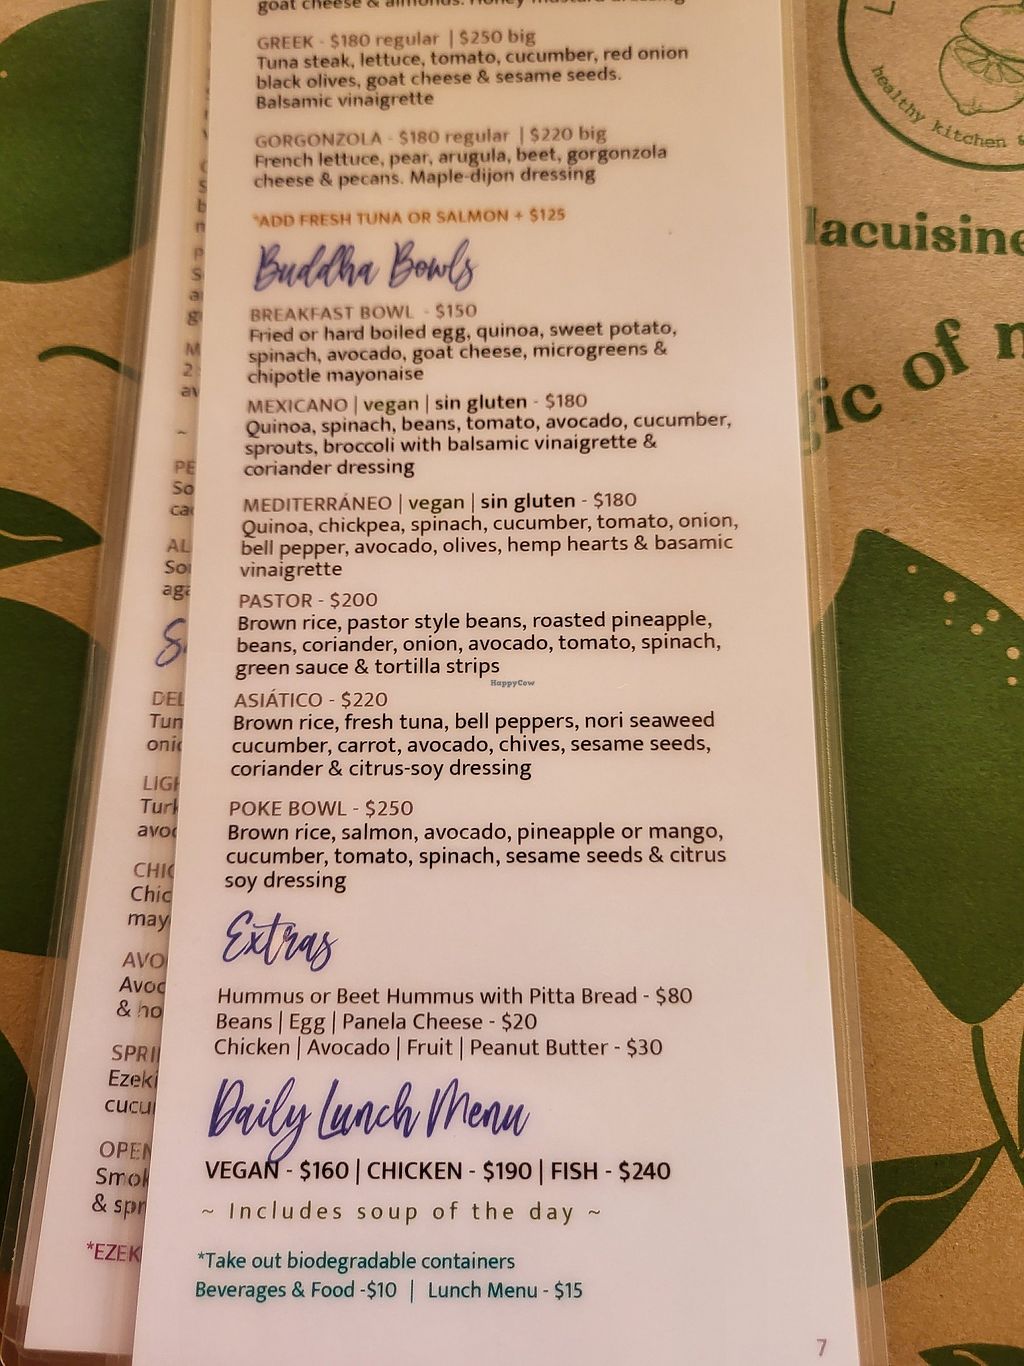 goat cheese & almonds. Honey mustard dressing
GREEK - $180 regular | $250 big
Tuna steak, lettuce, tomato, cucumber, red onion
black olives, goat cheese & sesame seeds.
Balsamic vinaigrette
GORGONZOLA - $180 regular | $220 big
French lettuce, pear, arugula, beet, gorgonzola
cheese & pecans. Maple-dijon dressing
*ADD FRESH TUNA OR SALMON + $125
Buddha Bowls
BREAKFAST BOWL - $150
Fried or hard boiled egg, quinoa, sweet potato,
spinach, avocado, goat cheese, microgreens &
chipotle mayonaise
MEXICANO | vegan | sin gluten - $180
Quinoa, spinach, beans, tomato, avocado, cucumber,
sprouts, broccoli with balsamic vinaigrette &
coriander dressing
MEDITERRÁNEO | vegan | sin gluten - $180
Quinoa, chickpea, spinach, cucumber, tomato, onion,
bell pepper, avocado, olives, hemp hearts & basamic
vinaigrette
PASTOR - $200
Brown rice, pastor style beans, roasted pineapple,
beans, coriander, onion, avocado, tomato, spinach,
green sauce & tortilla strips
HappyCow
ASIÁTICO - $220
Brown rice, fresh tuna, bell peppers, nori seaweed
cucumber, carrot, avocado, chives, sesame seeds,
coriander & citrus-soy dressing
POKE BOWL - $250
Brown rice, salmon, avocado, pineapple or mango,
cucumber, tomato, spinach, sesame seeds & citrus
soy dressing
Extras
Hummus or Beet Hummus with Pitta Bread - $80
Beans | Egg | Panela Cheese - $20
Chicken | Avocado | Fruit | Peanut Butter - $30
Daily Lunch Menu
VEGAN - $160 | CHICKEN - $190 | FISH - $240
~ Includes soup of the day ~
*Take out biodegradable containers
Beverages & Food -$10 | Lunch Menu - $15
7
healthy kitchen
lacuisine
of
& ho
& spr
*EZEK